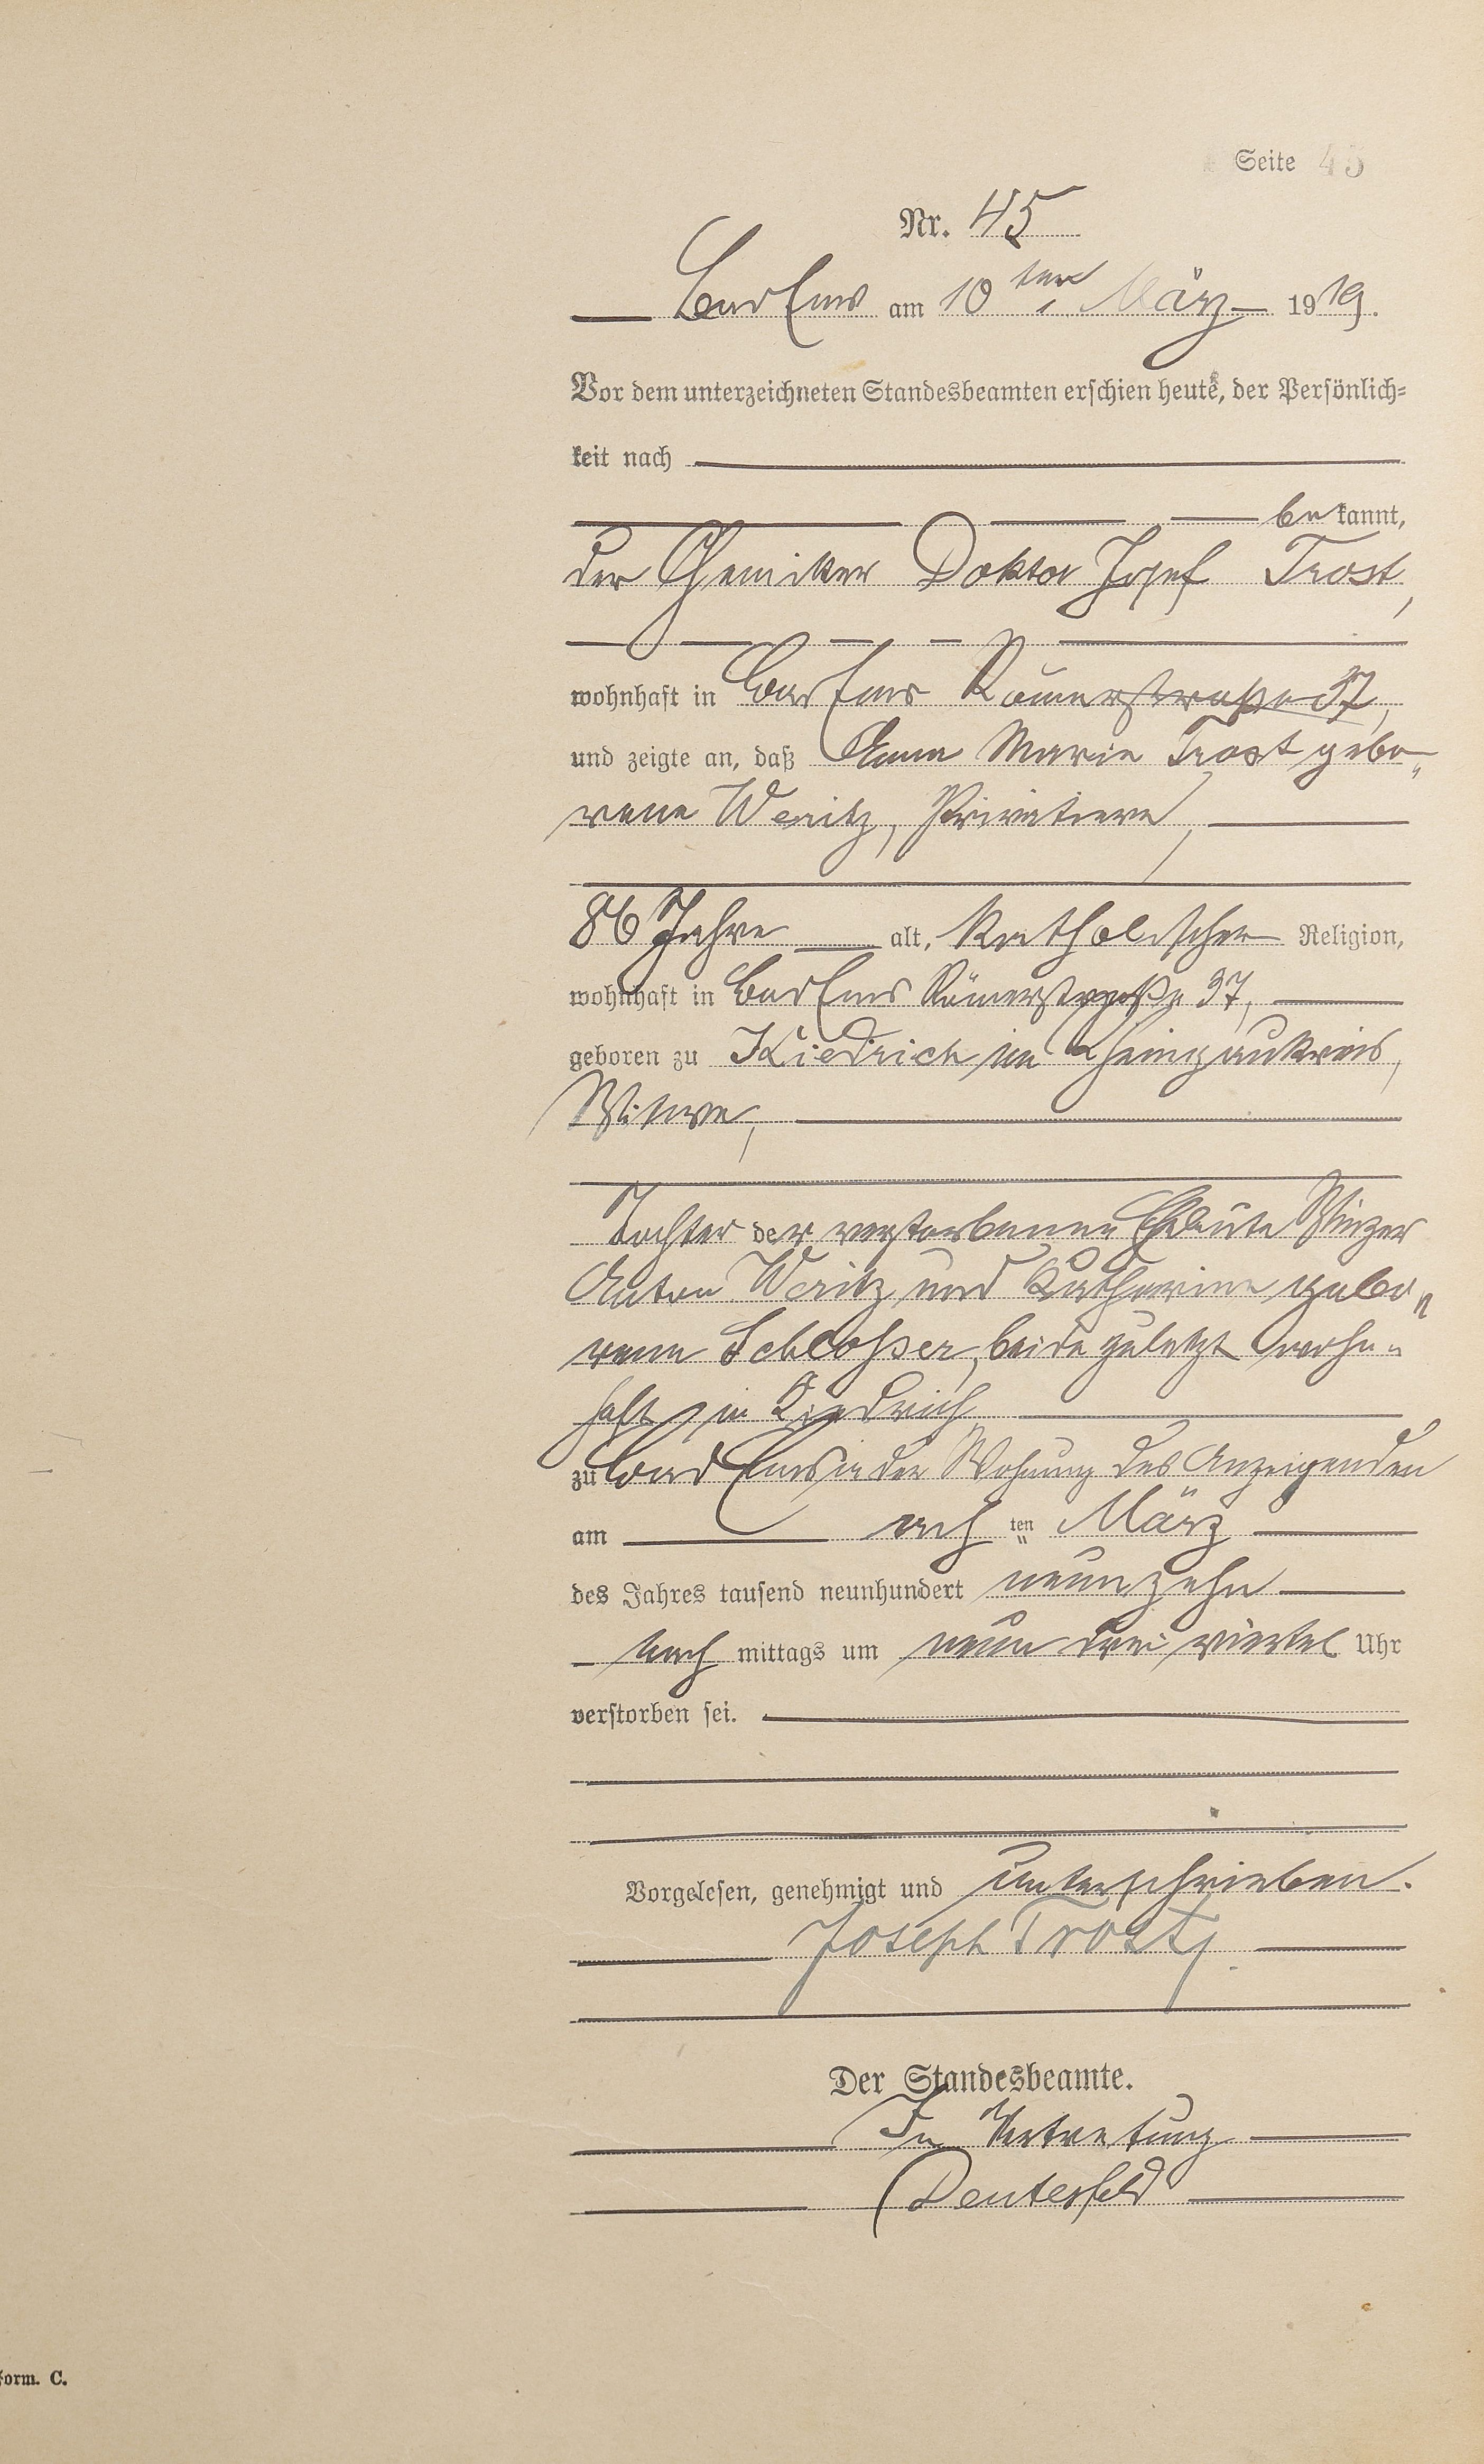 Seite 45
Nr. 45
Bad Ems am 10 ten März 1919.
Vor dem unterzeichneten Standesbeamten erschien heute, der Persönlich=
keit nach
be kannt,
der Chemiker Doktor Josef Trost,
wohnhaft in Bad Ems Römerstraße 37,
und zeigte an, daß Anna Maria Trost gebo-
rene Weritz, Privatiere,
86 Jahre alt, katholischer Religion,
wohnhaft in Bad Ems Römerstraße 37,
geboren zu Kiedrich im Rheingaukreis,
Witwe,
Tochter der verstorbenen Eheleute Winzer
Anton Weritz und Katharina gebo„
rene Schloßer, beide zuletzt wohn„
haft in Kiedrich
zu Bad Ems in der Wohnung des Anzeigenden
am ach ten März
des Jahres tausend neunhundert neunzehn
nach mittags um neun drei viertel Uhr
verstorben sei.
Vorgelesen, genehmigt und unterschrieben.
Joseph Trost
Der Standesbeamte.
In Vertretung
Deutesfeld
Form. C.